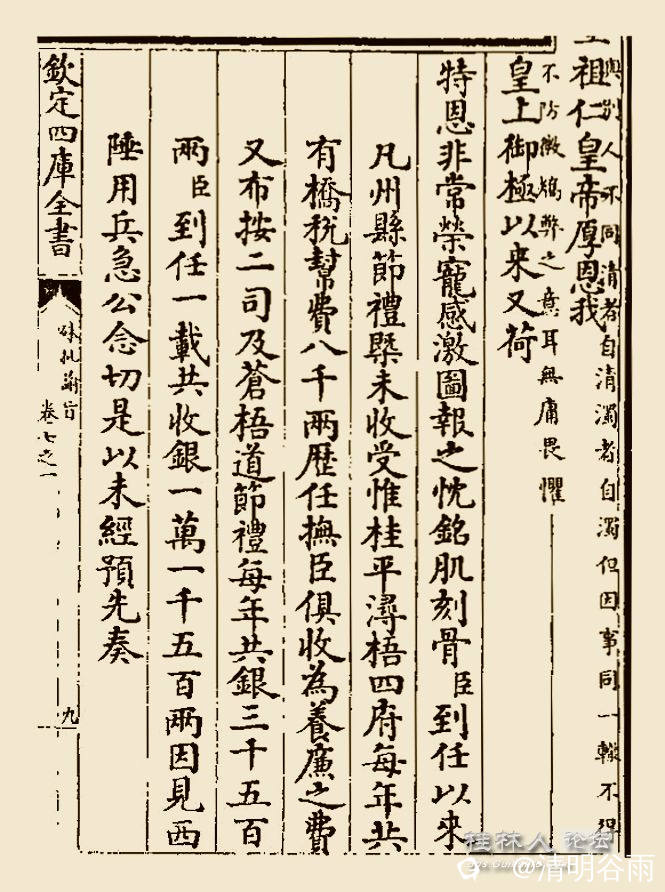 與別人不同清者自清濁者自濁但因事同一轍不得
祖仁皇帝厚恩我
不防微弊之意耳無庸畏懼
皇上御極以来又荷
特恩非常榮寵感激圖報之忱銘肌刻骨臣到任以来
凡州縣節禮槩未收受惟桂平潯梧四府每年共
有橋稅幫費八千兩歷任撫臣俱收為養廉之費
又布按二司及蒼梧道節禮每年共銀三千五百
兩臣到任一載共收銀一萬一千五百兩因見西
陲用兵急公念切是以未經預先奏
欽定四庫全書
硃批諭旨
卷七之一
九
桂林人论坛
@清明谷雨